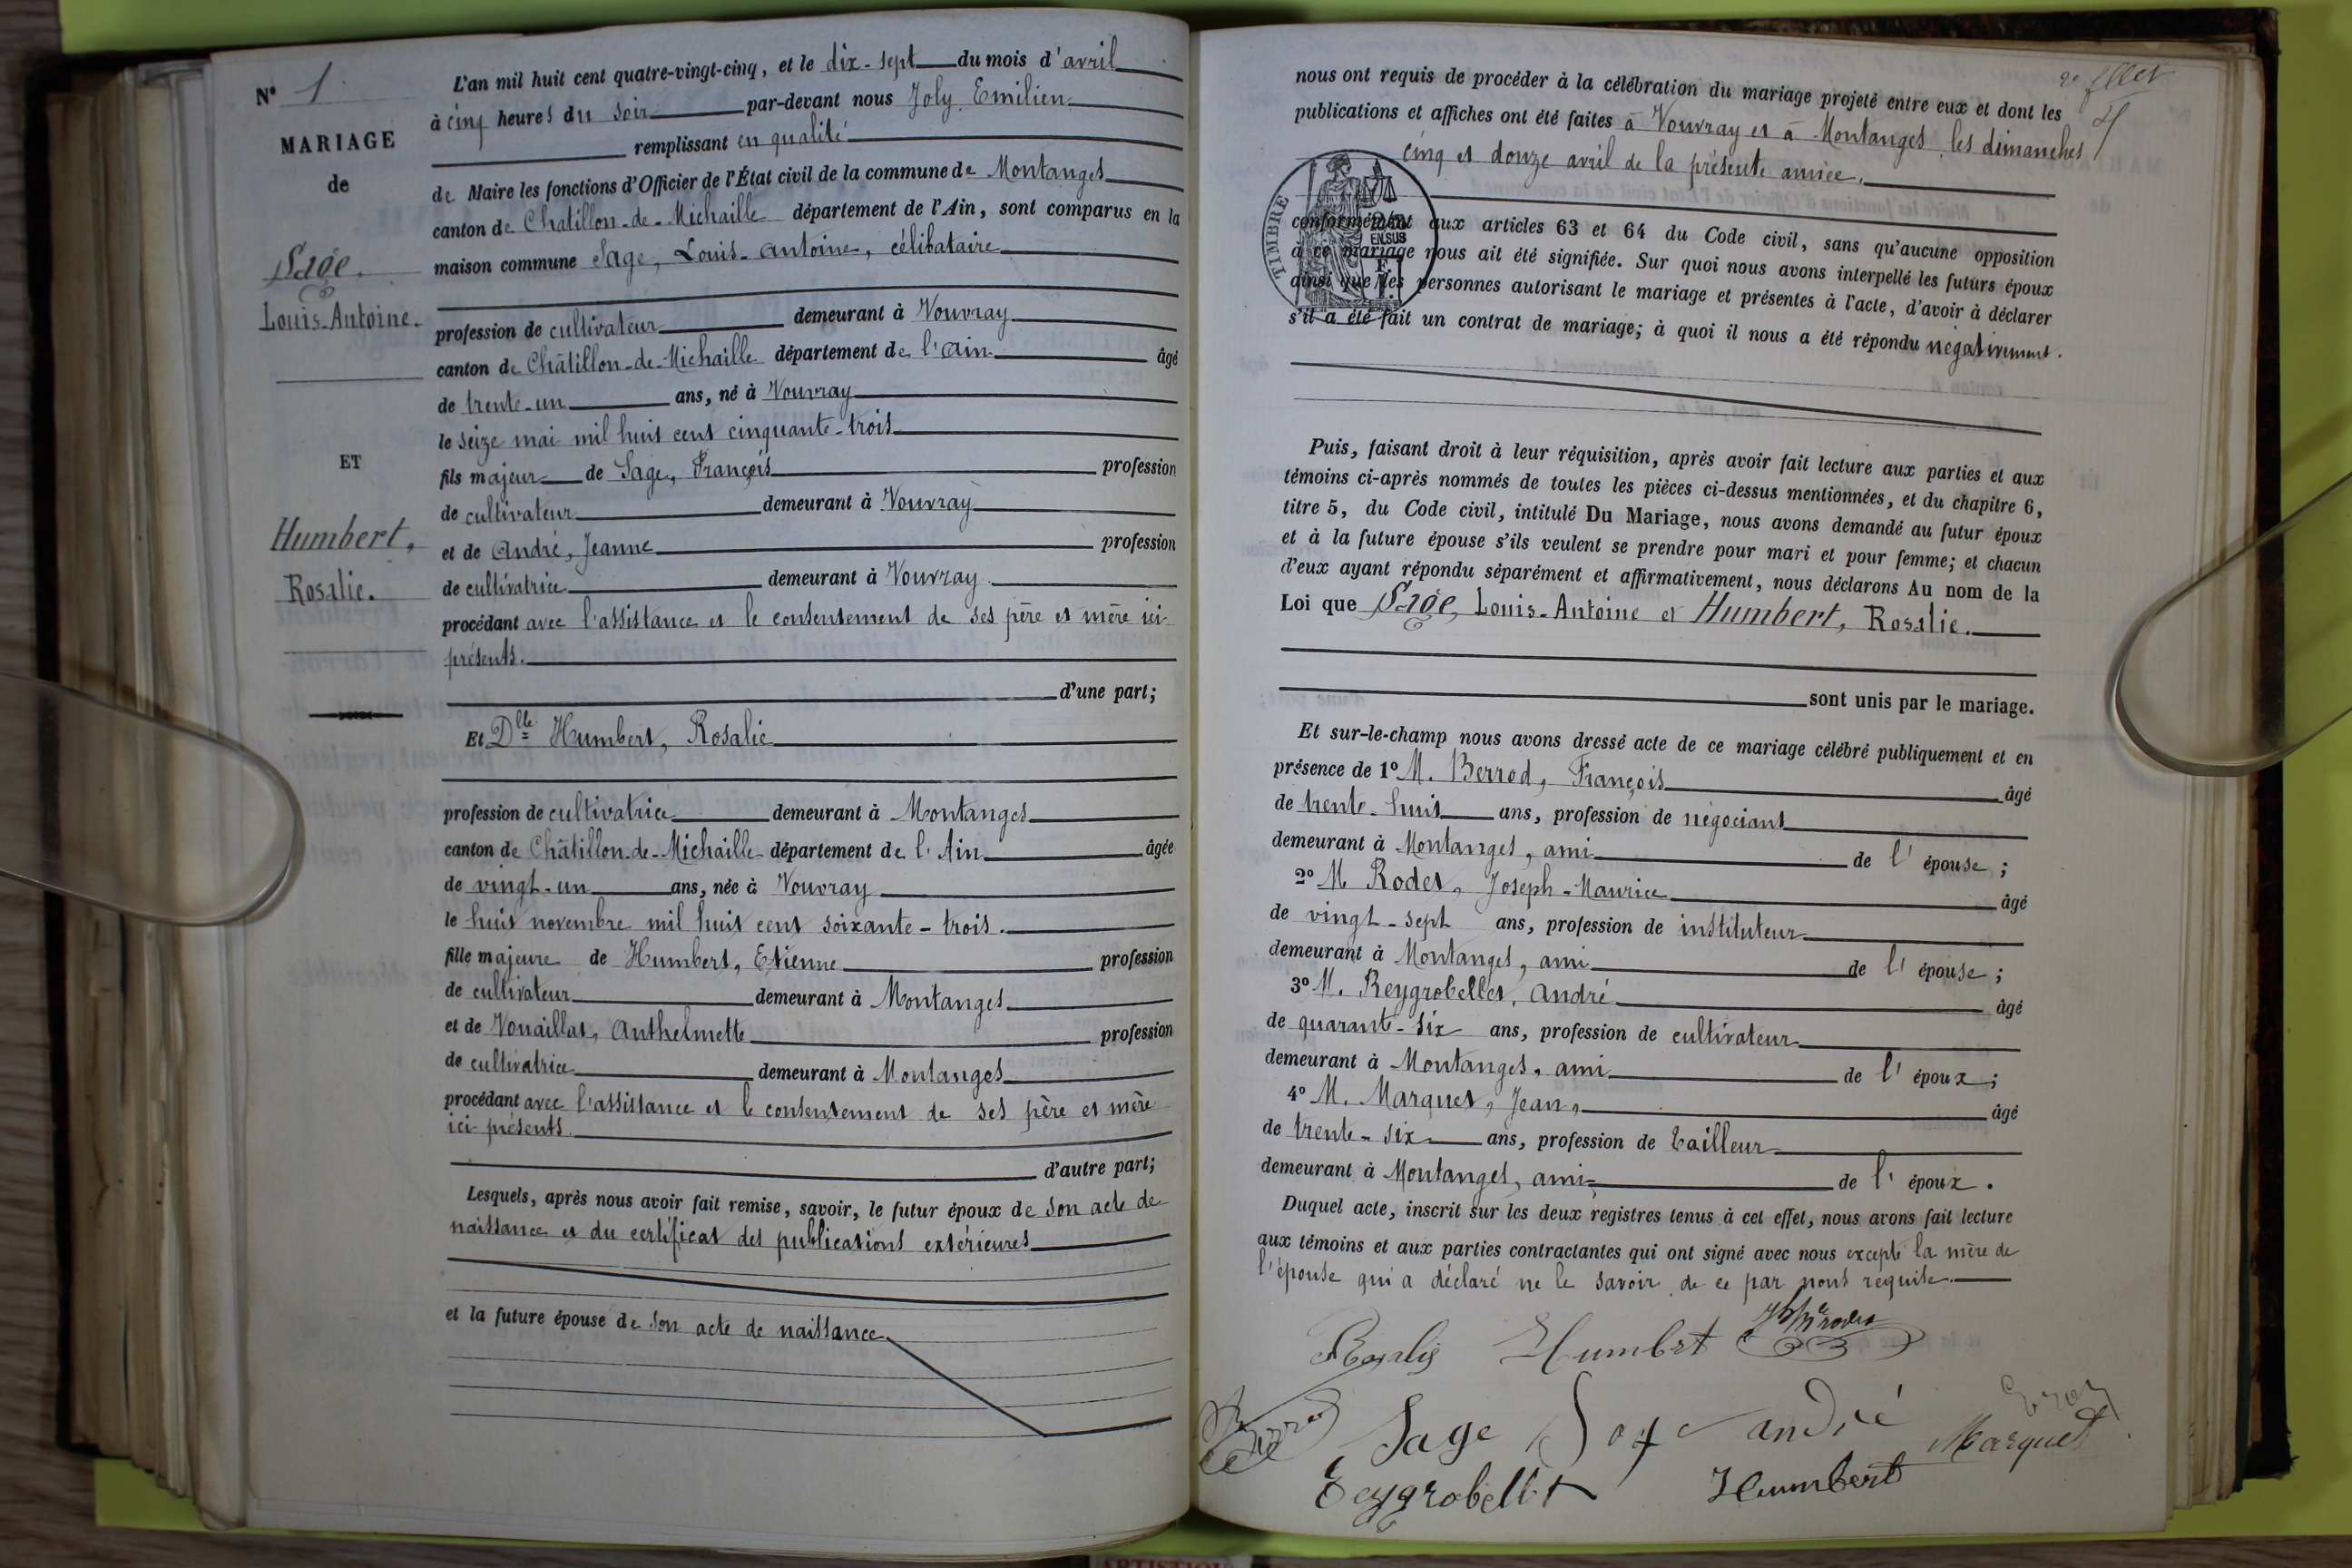 N° 1
MARIAGE
de
Sage
Louis-Antoine.
ET
Humbert,
Rosalie.
L'an mil huit cent quatre-vingt-cinq, et le dix-sept du mois d'avril
à cinq heures du soir par-devant nous Joly Emilien
remplissant en qualité
de Maire les fonctions d'Officier de l'État civil de la commune de Montanges
canton de Chatillon-de-Michaille département de l'Ain, sont comparus en la
maison commune Sage, Louis-Antoine, célibataire
profession de cultivateur demeurant à Vouvray
canton de Châtillon-de-Michaille département de l'Ain âgé
de trente-un ans, né à Vouvray
le seize mai mil huit cent cinquante-trois
fils majeur de Sage, François profession
de cultivateur demeurant à Vouvray
et de André, Jeanne profession
de cultivatrice demeurant à Vouvray
procédant avec l'assistance et le consentement de ses père et mère ici
présents.
d'une part;
Et Dlle Humbert, Rosalie
profession de cultivatrice demeurant à Montanges
canton de Châtillon-de-Michaille département de l'Ain âgée
de vingt-un ans, née à Vouvray
le huit novembre mil huit cent soixante-trois.
fille majeure de Humbert, Etienne profession
de cultivateur demeurant à Montanges
et de Vouaillat, Anthelmette profession
de cultivatrice demeurant à Montanges
procédant avec l'assistance et le consentement de ses père et mère
ici présents.
d'autre part;
Lesquels, après nous avoir fait remise, savoir, le futur époux de son acte de
naissance et du certificat des publications extérieures
et la future épouse de son acte de naissance
2e fllet
nous ont requis de procéder à la célébration du mariage projeté entre eux et dont les
publications et affiches ont été faites à Vouvray et à Montanges les dimanches
cinq et douze avril de la présente année.
TIMBRE
EN SUS
conformément aux articles 63 et 64 du Code civil, sans qu'aucune opposition
à ce mariage nous ait été signifiée. Sur quoi nous avons interpellé les futurs époux
ainsi que les personnes autorisant le mariage et présentes à l'acte, d'avoir à déclarer
s'il a été fait un contrat de mariage; à quoi il nous a été répondu négativement.
Puis, faisant droit à leur réquisition, après avoir fait lecture aux parties et aux
témoins ci-après nommés de toutes les pièces ci-dessus mentionnées, et du chapitre 6,
titre 5, du Code civil, intitulé Du Mariage, nous avons demandé au futur époux
et à la future épouse s'ils veulent se prendre pour mari et pour femme; et chacun
d'eux ayant répondu séparément et affirmativement, nous déclarons Au nom de la
Loi que Sage, Louis-Antoine et Humbert, Rosalie.
sont unis par le mariage.
Et sur-le-champ nous avons dressé acte de ce mariage célébré publiquement et en
présence de 1° M. Berrod, François âgé
de trente-huit ans, profession de négociant
demeurant à Montanges, ami de l'épouse;
2° M Rodet, Joseph-Maurice âgé
de vingt-sept ans, profession de instituteur
demeurant à Montanges, ami de l'épouse;
3° M. Reygrobellet, André âgé
de quarante-six ans, profession de cultivateur
demeurant à Montanges, ami de l'époux;
4° M. Marquet, Jean, âgé
de trente-six ans, profession de tailleur
demeurant à Montanges, ami de l'époux.
Duquel acte, inscrit sur les deux registres tenus à cet effet, nous avons fait lecture
aux témoins et aux parties contractantes qui ont signé avec nous excepté la mère de
l'épouse qui a déclaré ne le savoir de ce par nous requise.
Rosalie Humbert
Sage Sage andré Marquet
Reygrobellet Humbert